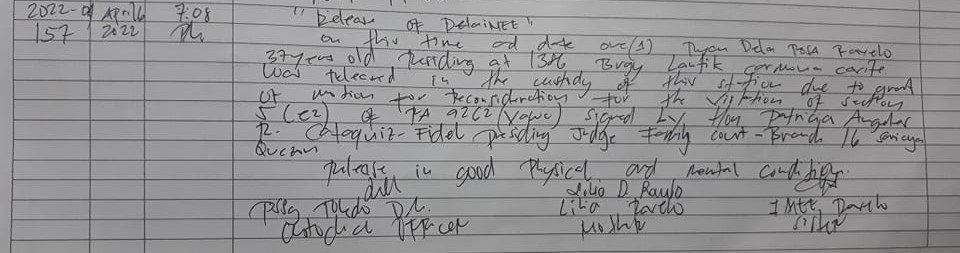 2022-04 April 6 7:08 "Release of Detainee"
157 2022 PM on this time and date one (1) Ryan Dela Rosa
37 years old residing at 1386 Brgy Lantik Carmona Cavite
was released in the custody of this station due to grant
of motion for reconsideration for the violation of section
5 (E2) of RA 9262 (Vawc) signed by Hon Patricia Angular
R. Cataquiz-Fidel presiding Judge Family Court - Branch 16
Quezon
Release in good physical and mental condition.
Lilia D.
PSSg Toledo Lilia
Custodial Officer Mother Sister